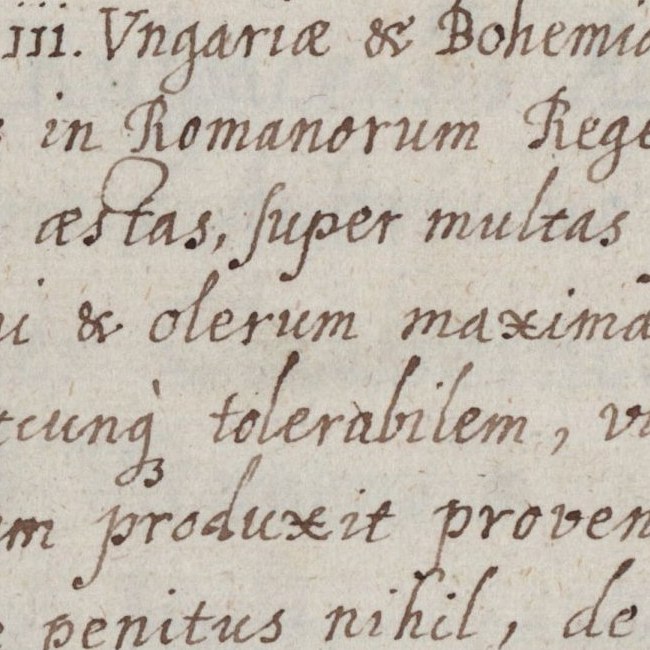 iii. Vngariæ & Bohemia
in Romanorum Rege
æstas, ſuper multas
ni & olerum maximā
tcunq́ꝫ tolerabilem, v
em produxit proven
penitus nihil, de